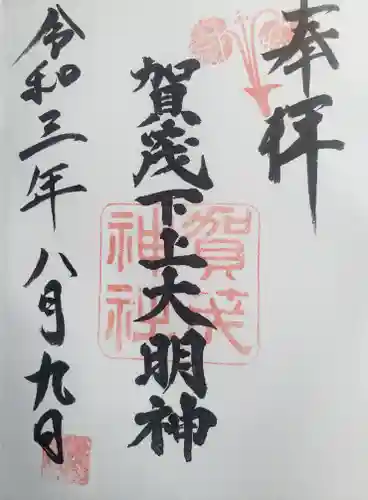 奉拝
賀茂下上大明神
賀茂神社
令和三年八月九日